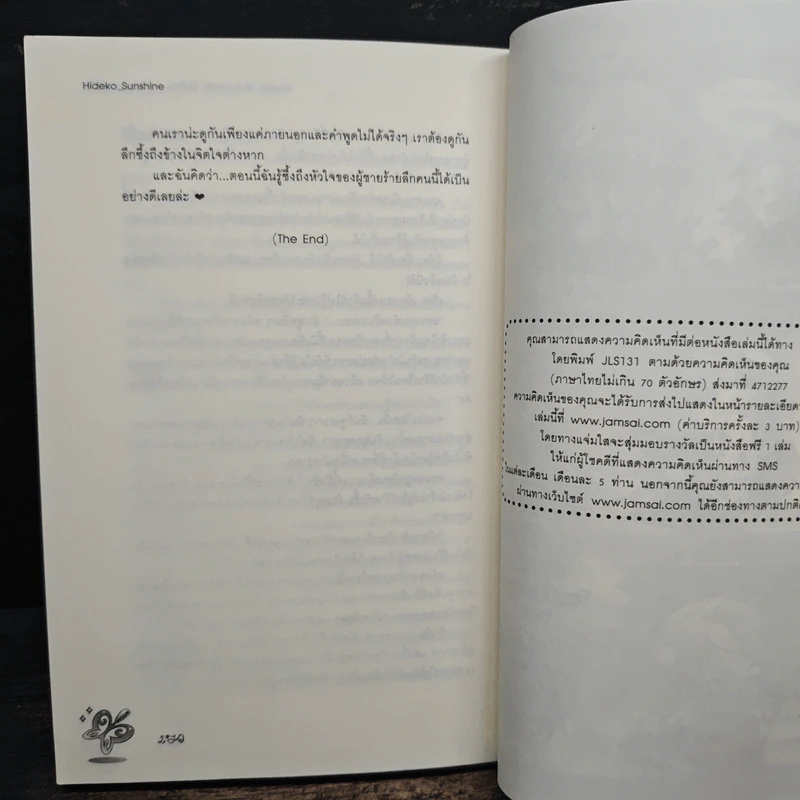 Hideko_Sunshine
คนเราน่ะดูกันเพียงแค่ภายนอกและคำพูดไม่ได้จริงๆ เราต้องดูกัน
ลึกซึ้งถึงข้างในจิตใจต่างหาก
และฉันคิดว่า...ตอนนี้ฉันรู้ซึ้งถึงหัวใจของผู้ชายร้ายลึกคนนี้ได้เป็น
อย่างดีเลยล่ะ ❤
(The End)
คุณสามารถแสดงความคิดเห็นที่มีต่อหนังสือเล่มนี้ได้ทาง
โดยพิมพ์ JLS131 ตามด้วยความคิดเห็นของคุณ
(ภาษาไทยไม่เกิน 70 ตัวอักษร) ส่งมาที่ 4712277
ความคิดเห็นของคุณจะได้รับการส่งไปแสดงในหน้ารายละเอียด
เล่มนี้ที่ www.jamsai.com (ค่าบริการครั้งละ 3 บาท)
โดยทางแจ่มใสจะสุ่มมอบรางวัลเป็นหนังสือฟรี 1 เล่ม
ให้แก่ผู้โชคดีที่แสดงความคิดเห็นผ่านทาง SMS
ในแต่ละเดือน เดือนละ 5 ท่าน นอกจากนี้คุณยังสามารถแสดงความ
ผ่านทางเว็บไซต์ www.jamsai.com ได้อีกช่องทางตามปกติ